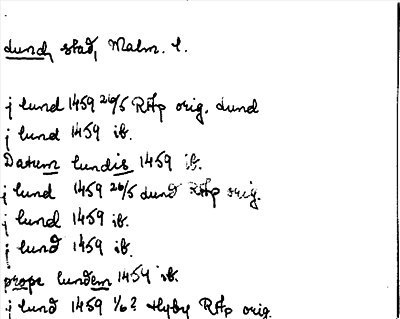 Lund, stad, Malm. l.
j lund 1459 26/5 RAp orig. Lund
j lund 1459 ib.
Datum lundis 1459 ib.
j lund 1459 26/5 Lund RAp orig.
j lund 1459 ib.
j lund 1459 ib.
prope lundem 1459 ib.
j lund 1459 1/6? Hyby RAp orig.